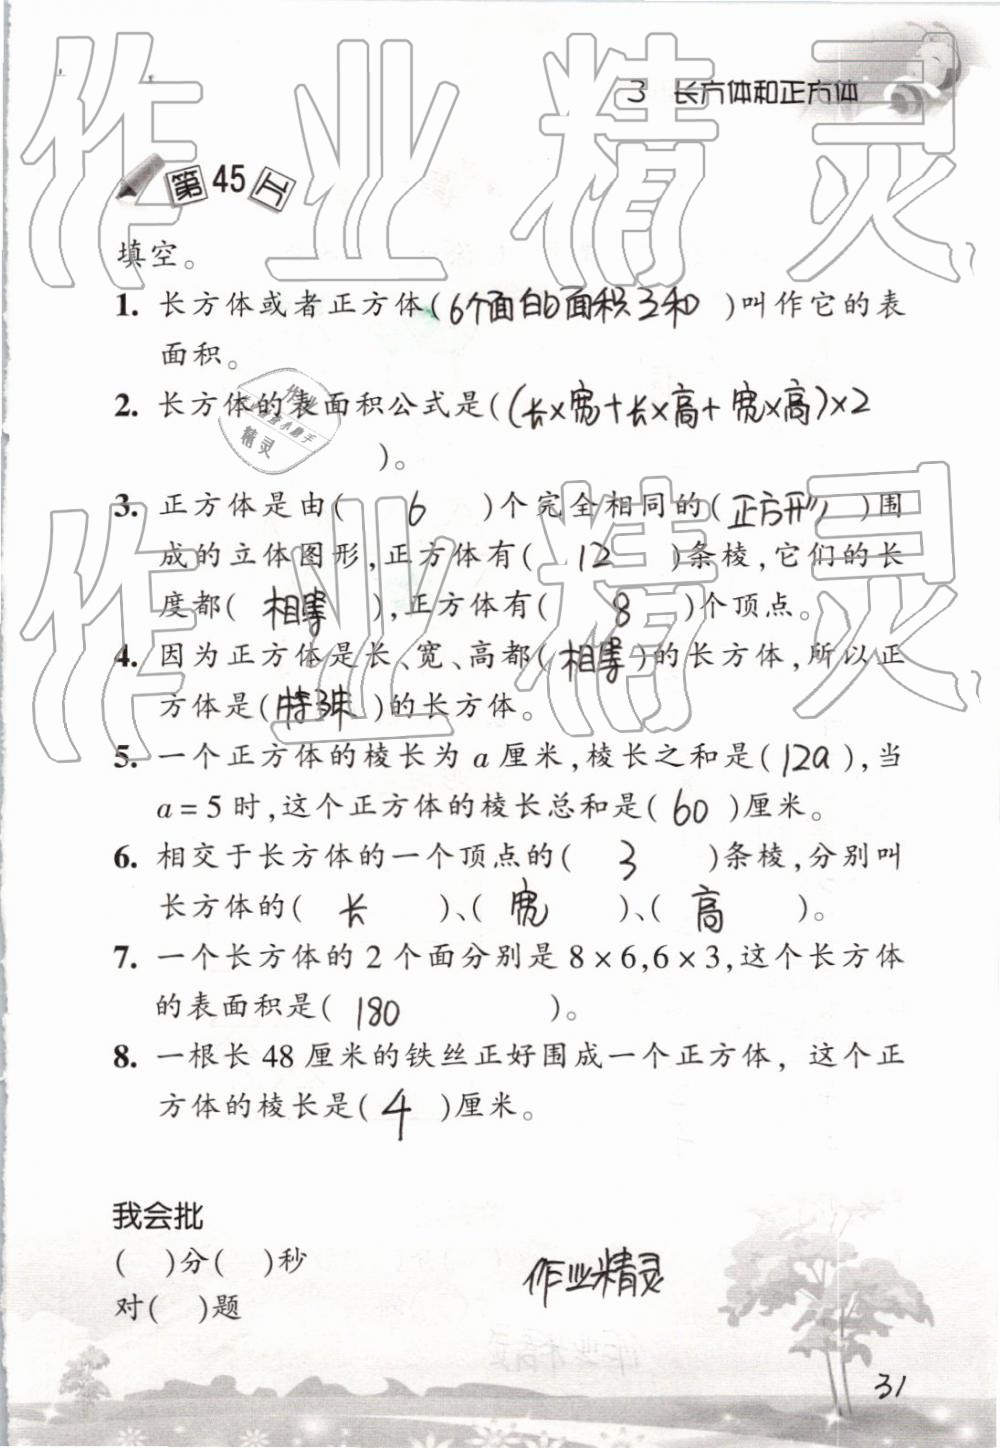 3 长方体和正方体
第45工
填空。
1. 长方体或者正方体(6个面的面积之和)叫作它的表
面积。
2. 长方体的表面积公式是((长×宽+长×高+宽×高)×2
)。
3. 正方体是由( 6 )个完全相同的(正方形)围
成的立体图形,正方体有( 12 )条棱,它们的长
度都( 相等 ),正方体有( 8 )个顶点。
4. 因为正方体是长、宽、高都(相等)的长方体,所以正
方体是(特殊)的长方体。
5. 一个正方体的棱长为a厘米,棱长之和是(12a),当
a=5时,这个正方体的棱长总和是(60)厘米。
6. 相交于长方体的一个顶点的( 3 )条棱,分别叫
长方体的( 长 )、( 宽 )、( 高 )。
7. 一个长方体的2个面分别是8×6,6×3,这个长方体
的表面积是( 180 )。
8. 一根长48厘米的铁丝正好围成一个正方体, 这个正
方体的棱长是( 4 )厘米。
我会批
( )分( )秒
对( )题
作业精灵
31
作业精灵
作业精灵